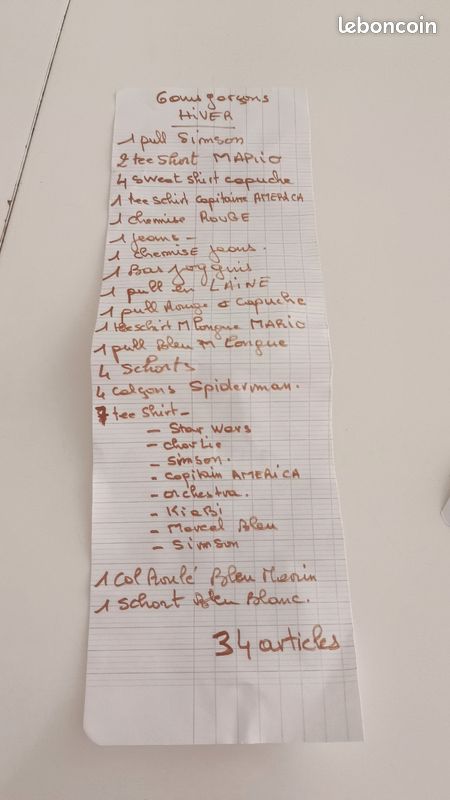 leboncoin
6ans garçons
HiVER
1 pull Simson
2 tee short MARiO
4 sweat shirt capuche
1 tee schirt capitaine AMERICA
1 chemise ROUGE
1 jeans -
1 chemise jeans.
1 Bas joggins
1 pull en LAiNE
1 pull Rouge a capuche
1 teeschirt M longue MARIO
1 pull Bleu M Longue
4 Schorts
4 calçons Spiderman.
7 tee shirt -
- Star Wars
- charlie
- simson.
- capitain AMERiCA
- orchestra.
- KiaBi
- Marcel Bleu
- Simson
1 Col Roulé Bleu Marin
1 Schort Bleu Blanc.
34 articles